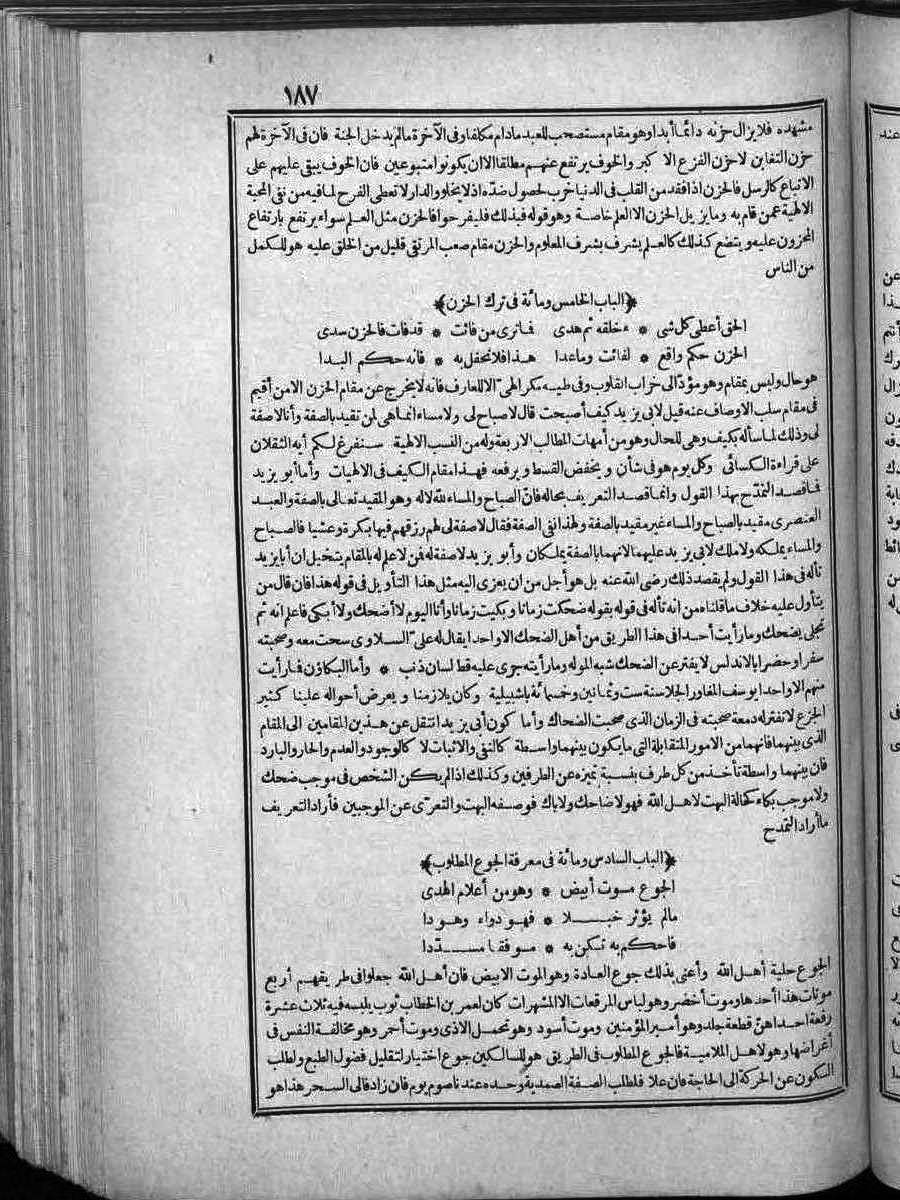 ١٨٧
مشهده فلايزال حزنه دائما أبدا وهو مقام مستصحب للعبد مادام مكلفا وفى الآخرة مالم يدخل الجنة فان فى الآخرة لهم
حزن التغابن لا حزن الفزع الا كبر والخوف يرتفع عنهم مطلقا الا ان يكونوا متبوعين فان الخوف يبقى عليهم على
الاتباع كالرسل فالحزن اذا فقد من القلب فى الدنيا خرب لحصول ضده اذ لا يخلو والدار لا تعطى الفرح لما فيه من نفى المحبة
الالهية عمن قام به وما يزيل الحزن الا العلم خاصة وهو قوله فبذلك فليفرحوا فالحزن مثل العلم سواء يرتفع بارتفاع
المحزون عليه ويتضع كذلك كالعلم يشرف بشرف المعلوم والحزن مقام صعب المرتقى قليل من الخلق عليه هو للكمل
من الناس
﴿الباب الخامس ومائة فى ترك الحزن﴾
الحق أعطى كل شى * ء خلقه ثم هدى فماترى من فائت * قد فات فالحزن سدى
الحزن حكم واقع * لفائت وما عدا هذا فلا تحفل به * فانه حكم البدا
هو حال وليس بمقام وهو مؤد الى خراب القلوب وفى طيه مكر الهى الا للعارف فانه لا يخرج عن مقام الحزن الا من أقيم
فى مقام سلب الاوصاف عنه قيل لابى يزيد كيف أصبحت قال لا صباح لى ولا مساء انما هى لمن تقيد بالصفة وأنا لا صفة
لى وذلك لما سأله بكيف وهى للحال وهو من أمهات المطالب الاربعة وله من النسب الالهية سنفرغ لكم أيه الثقلان
على قراءة الكسائى وكل يوم هو فى شأن و يخفض القسط ويرفعه فهذا مقام الكيف فى الالهيات وأما أبو يزيد
فما قصد التمدّح بهذا القول وانما قصد التعريف بحاله فانّ الصباح والمساء لله لا له وهو المقيد تعالى بالصفة والعبد
العنصرى مقيد بالصباح والمساء غير مقيد بالصفة ولهذا نفى الصفة فقال لا صفة لى لهم رزقهم فيها بكرة وعشيا فالصباح
والمساء يملكه ولا ملك لابى يزيد عليهما لانهما بالصفة يملكان وأبو يزيد لا صفة له فمن لا علم له بالمقام يتخيل ان أبا يزيد
تأله فى هذا القول ولم يقصد ذلك رضى الله عنه بل هو أجل من ان يعزى اليه مثل هذا التأويل فى قوله هذا فان قال من
يتأول عليه خلاف ما قلناه من انه تأله فى قوله بقوله ضحكت زمانا و بكيت زمانا وأنا اليوم لا أضحك ولا أبكى فاعلم انه ثم
تجلى يضحك وما رأيت أحدا فى هذا الطريق من أهل الضحك الا واحدا يقال له علىّ السلاوى سحت معه وصحبته
سفرا وحضرا بالاندلس لا يفتر عن الضحك شبه الموله وما رأيته جرى عليه قط لسان ذنب * وأما البكاؤن فما رأيت
منهم الا واحدا يوسف المغاور الجلا سنة ست وثمانين وخمسمائة باشبيلية وكان يلازمنا و يعرض أحواله علينا كثير
الجزع لا تفتر له دمعة صحبته فى الزمان الذى صحبت الضحاك وأما كون أبى يزيد انتقل عن هذين المقامين الى المقام
الذى بينهما فانهما من الامور المتقابلة التى ما يكون بينهما واسطة كالنفى والاثبات لا كالوجود والعدم والحار والبارد
فان بينهما واسطة تأخذ من كل طرف بنسبة تميزه عن الطرفين وكذلك اذا لم يكن الشخص فى موجب ضحك
ولا موجب بكاء كحالة البهت لاهل الله فهو لا ضاحك ولا باك فوصفه البهت والتعرّى عن الموجبين فأراد التعريف
ما أراد التمدح
﴿الباب السادس ومائة فى معرفة الجوع المطلوب﴾
الجوع موت أبيض * وهو من أعلام الهدى
مالم يؤثر خبلا * فهو دواء وهو دا
فاحكم به تكن به * موفقا مسدّدا
الجوع حلية أهل الله وأعنى بذلك جوع العادة وهو الموت الابيض فان أهل الله جعلوا فى طريقهم أربع
موتات هذا أحدها وموت أخضر وهو لباس المرقعات الا المشهرات كان لعمر بن الخطاب ثوب يلبسه فيه ثلاث عشرة
رقعة احداهنّ قطعة جلد وهو أمير المؤمنين وموت أسود وهو تحمل الاذى وموت أحمر وهو مخالفة النفس فى
أغراضها وهو لاهل الملامية فالجوع المطلوب فى الطريق هو للسالكين جوع اختيار لتقليل فضول الطبع ولطلب
السكون عن الحركة الى الحاجة فان علا فلطلب الصفة الصمدية وحده عندنا صوم يوم فان زاد فالى السحر هذا هو